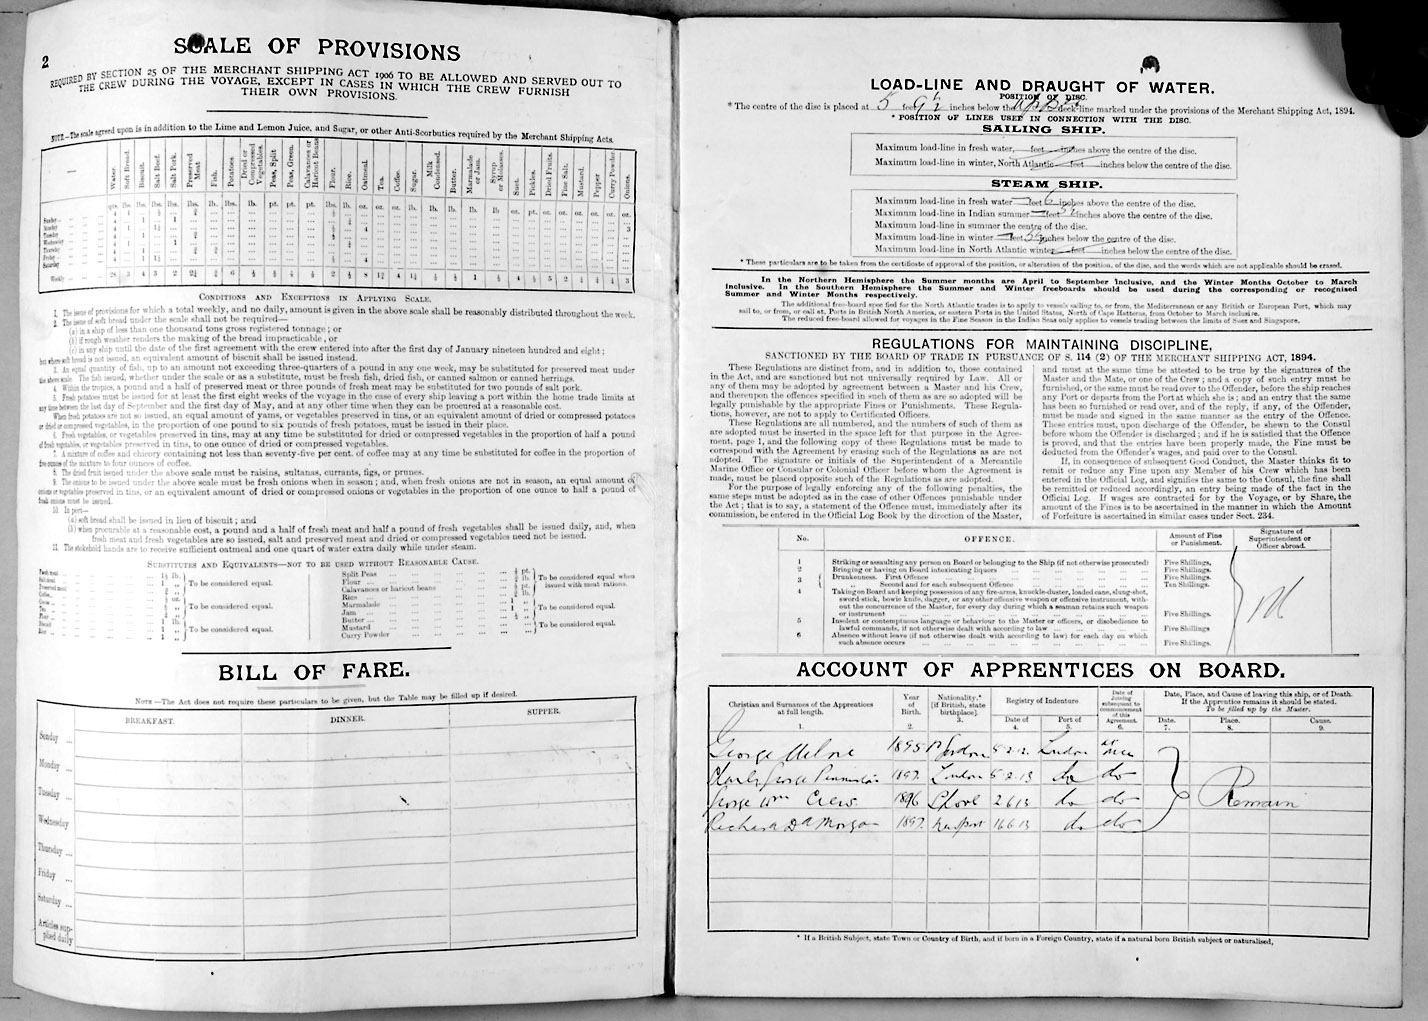 2
SCALE OF PROVISIONS
REQUIRED BY SECTION 25 OF THE MERCHANT SHIPPING ACT 1906 TO BE ALLOWED AND SERVED OUT TO
THE CREW DURING THE VOYAGE, EXCEPT IN CASES IN WHICH THE CREW FURNISH
THEIR OWN PROVISIONS.
NOTE.—The scale agreed upon is in addition to the Lime and Lemon Juice, and Sugar, or other Anti-Scorbutics required by the Merchant Shipping Acts.
Water. Soft Bread. Biscuit. Salt Beef. Salt Pork. Preserved Meat Fish. Potatoes Dried or Compressed Vegetables. Peas, Split Peas, Green. Calavances or Haricot Beans Flour. Rice. Oatmeal. Tea. Coffee. Sugar. Milk Condensed. Butter. Marmalade or Jam. Syrup or Molasses. Suet. Pickles. Dried Fruits. Fine Salt. Mustard. Pepper Curry Powder. Onions.
Sunday
Monday
Tuesday
Wednesday
Thursday
Friday
Saturday
Weekly
CONDITIONS AND EXCEPTIONS IN APPLYING SCALE.
1. The issue of provisions for which a total weekly, and no daily, amount is given in the above scale shall be reasonably distributed throughout the week.
2. The issue of soft bread under the scale shall not be required—
(a) in a ship of less than one thousand tons gross registered tonnage; or
(b) if rough weather renders the making of the bread impracticable, or
(c) in any ship until the date of the first agreement with the crew entered into after the first day of January nineteen hundred and eight;
but where soft bread is not issued, an equivalent amount of biscuit shall be issued instead.
3. An equal quantity of fish, up to an amount not exceeding three-quarters of a pound in any one week, may be substituted for preserved meat under
the above scale. The fish issued, whether under the scale or as a substitute, must be fresh fish, dried fish, or canned salmon or canned herrings.
4. Within the tropics, a pound and a half of preserved meat or three pounds of fresh meat may be substituted for two pounds of salt pork.
5. Fresh potatoes must be issued for at least the first eight weeks of the voyage in the case of every ship leaving a port within the home trade limits at
any time between the last day of September and the first day of May, and at any other time when they can be procured at a reasonable cost.
When fresh potatoes are not so issued, an equal amount of yams, or vegetables preserved in tins, or an equivalent amount of dried or compressed potatoes
or dried or compressed vegetables, in the proportion of one pound to six pounds of fresh potatoes, must be issued in their place.
6. Fresh vegetables, or vegetables preserved in tins, may at any time be substituted for dried or compressed vegetables in the proportion of half a pound
of fresh vegetables, or vegetables preserved in tins, to one ounce of dried or compressed vegetables.
7. A mixture of coffee and chicory containing not less than seventy-five per cent. of coffee may at any time be substituted for coffee in the proportion of
five ounces of the mixture to four ounces of coffee.
8. The dried fruit issued under the above scale must be raisins, sultanas, currants, figs, or prunes.
9. The onions to be issued under the above scale must be fresh onions when in season; and, when fresh onions are not in season, an equal amount of
onions or vegetables preserved in tins, or an equivalent amount of dried or compressed onions or vegetables in the proportion of one ounce to half a pound of
fresh onions must be issued.
10. In port—
(a) soft bread shall be issued in lieu of biscuit; and
(b) when procurable at a reasonable cost, a pound and a half of fresh meat and half a pound of fresh vegetables shall be issued daily, and, when
fresh meat and fresh vegetables are so issued, salt and preserved meat and dried or compressed vegetables need not be issued.
11. The stokehold hands are to receive sufficient oatmeal and one quart of water extra daily while under steam.
SUBSTITUTES AND EQUIVALENTS—NOT TO BE USED WITHOUT REASONABLE CAUSE.
To be considered equal.
To be considered equal.
To be considered equal.
Split Peas
Flour
Calavances or haricot beans
Rice
To be considered equal when issued with meat rations.
Marmalade
Jam
Butter
To be considered equal.
Mustard
Curry Powder
To be considered equal.
BILL OF FARE.
NOTE—The Act does not require these particulars to be given, but the Table may be filled up if desired.
BREAKFAST. DINNER. SUPPER.
Sunday
Monday
Tuesday
Wednesday
Thursday
Friday
Saturday
Articles supplied daily
LOAD-LINE AND DRAUGHT OF WATER.
POSITION OF DISC.
* The centre of the disc is placed at 5 feet 9½ inches below the upper deck-line marked under the provisions of the Merchant Shipping Act, 1894.
* POSITION OF LINES USED IN CONNECTION WITH THE DISC.
SAILING SHIP.
Maximum load-line in fresh water, feet inches above the centre of the disc.
Maximum load-line in winter, North Atlantic feet inches below the centre of the disc.
STEAM SHIP.
Maximum load-line in fresh water feet 6 inches above the centre of the disc.
Maximum load-line in Indian summer feet inches above the centre of the disc.
Maximum load-line in summer the centre of the disc.
Maximum load-line in winter feet inches below the centre of the disc.
Maximum load-line in North Atlantic winter feet inches below the centre of the disc.
* These particulars are to be taken from the certificate of approval of the position, or alteration of the position, of the disc, and the words which are not applicable should be erased.
In the Northern Hemisphere the Summer months are April to September inclusive, and the Winter Months October to March
inclusive. In the Southern Hemisphere the Summer and Winter freeboards should be used during the corresponding or recognised
Summer and Winter Months respectively.
The additional free-board specified for the North Atlantic trades is to apply to vessels sailing to, or from, the Mediterranean or any British or European Port, which may
sail to, or from, or call at, Ports in British North America, or eastern Ports in the United States, North of Cape Hatteras, from October to March inclusive.
The reduced free-board allowed for voyages in the Fine Season in the Indian Seas only applies to vessels trading between the limits of Suez and Singapore.
REGULATIONS FOR MAINTAINING DISCIPLINE,
SANCTIONED BY THE BOARD OF TRADE IN PURSUANCE OF S. 114 (2) OF THE MERCHANT SHIPPING ACT, 1894.
These Regulations are distinct from, and in addition to, those contained
in the Act, and are sanctioned but not universally required by Law. All or
any of them may be adopted by agreement between a Master and his Crew,
and thereupon the offences specified in such of them as are so adopted will be
legally punishable by the appropriate Fines or Punishments. These Regulations,
however, are not to apply to Certificated Officers.
These Regulations are all numbered, and the numbers of such of them as
are adopted must be inserted in the space left for that purpose in the Agreement,
page 1, and the following copy of these Regulations must be made to
correspond with the Agreement by erasing such of the Regulations as are not
adopted. The signature or initials of the Superintendent of a Mercantile
Marine Office or Consular or Colonial Officer before whom the Agreement is
made, must be placed opposite such of the Regulations as are adopted.
For the purpose of legally enforcing any of the following penalties, the
same steps must be adopted as in the case of other Offences punishable under
the Act; that is to say, a statement of the Offence must, immediately after its
commission, be entered in the Official Log Book by the direction of the Master,
and must at the same time be attested to be true by the signatures of the
Master and the Mate, or one of the Crew; and a copy of such entry must be
furnished, or the same must be read over to the Offender, before the ship reaches
any Port or departs from the Port at which she is; and an entry that the same
has been so furnished or read over, and of the reply, if any, of the Offender,
must be made and signed in the same manner as the entry of the Offence.
These entries must, upon discharge of the Offender, be shewn to the Consul
before whom the Offender is discharged; and if he is satisfied that the Offence
is proved, and that the entries have been properly made, the Fine must be
deducted from the Offender's wages, and paid over to the Consul.
If, in consequence of subsequent Good Conduct, the Master thinks fit to
remit or reduce any Fine upon any Member of his Crew which has been
entered in the Official Log, and signifies the same to the Consul, the fine shall
be remitted or reduced accordingly, an entry being made of the fact in the
Official Log. If wages are contracted for by the Voyage, or by Share, the
amount of the Fines is to be ascertained in the manner in which the Amount
of Forfeiture is ascertained in similar cases under Sect. 234.
No. OFFENCE. Amount of Fine or Punishment. Signature of Superintendent or Officer abroad.
1 Striking or assaulting any person on Board or belonging to the Ship (if not otherwise prosecuted) Five Shillings.
2 Bringing or having on Board intoxicating liquors Five Shillings.
3 Drunkenness. First Offence Five Shillings.
Second and for each subsequent Offence Ten Shillings.
4 Taking on Board and keeping possession of any fire-arms, knuckle-duster, loaded cane, slung-shot,
sword-stick, bowie knife, dagger, or any other offensive weapon or offensive instrument, without
the concurrence of the Master, for every day during which a seaman retains such weapon
or instrument Five Shillings.
5 Insolent or contemptuous language or behaviour to the Master or officers, or disobedience to
lawful commands, if not otherwise dealt with according to law Five Shillings.
6 Absence without leave (if not otherwise dealt with according to law) for each day on which
such absence occurs Five Shillings.
ACCOUNT OF APPRENTICES ON BOARD.
Christian and Surnames of the Apprentices at full length. 1.
Year of Birth. 2.
Nationality.* [if British, state birthplace]. 3.
Registry of Indenture
Date of 4. Port of 5.
Date of Joining subsequent to commencement of this Agreement. 6.
Date, Place, and Cause of leaving this ship, or of Death.
If the Apprentice remains it should be stated.
To be filled up by the Master.
Date. 7. Place. 8. Cause. 9.
George Milne 1895 5-2-12 London at once
Charles George 1897 London 5-2-13 do do
George Wm Crews 1896 2613 do do Remain
Richard Morgan 1897 Newport 16613 do do
* If a British Subject, state Town or Country of Birth, and if born in a Foreign Country, state if a natural born British subject or naturalised,